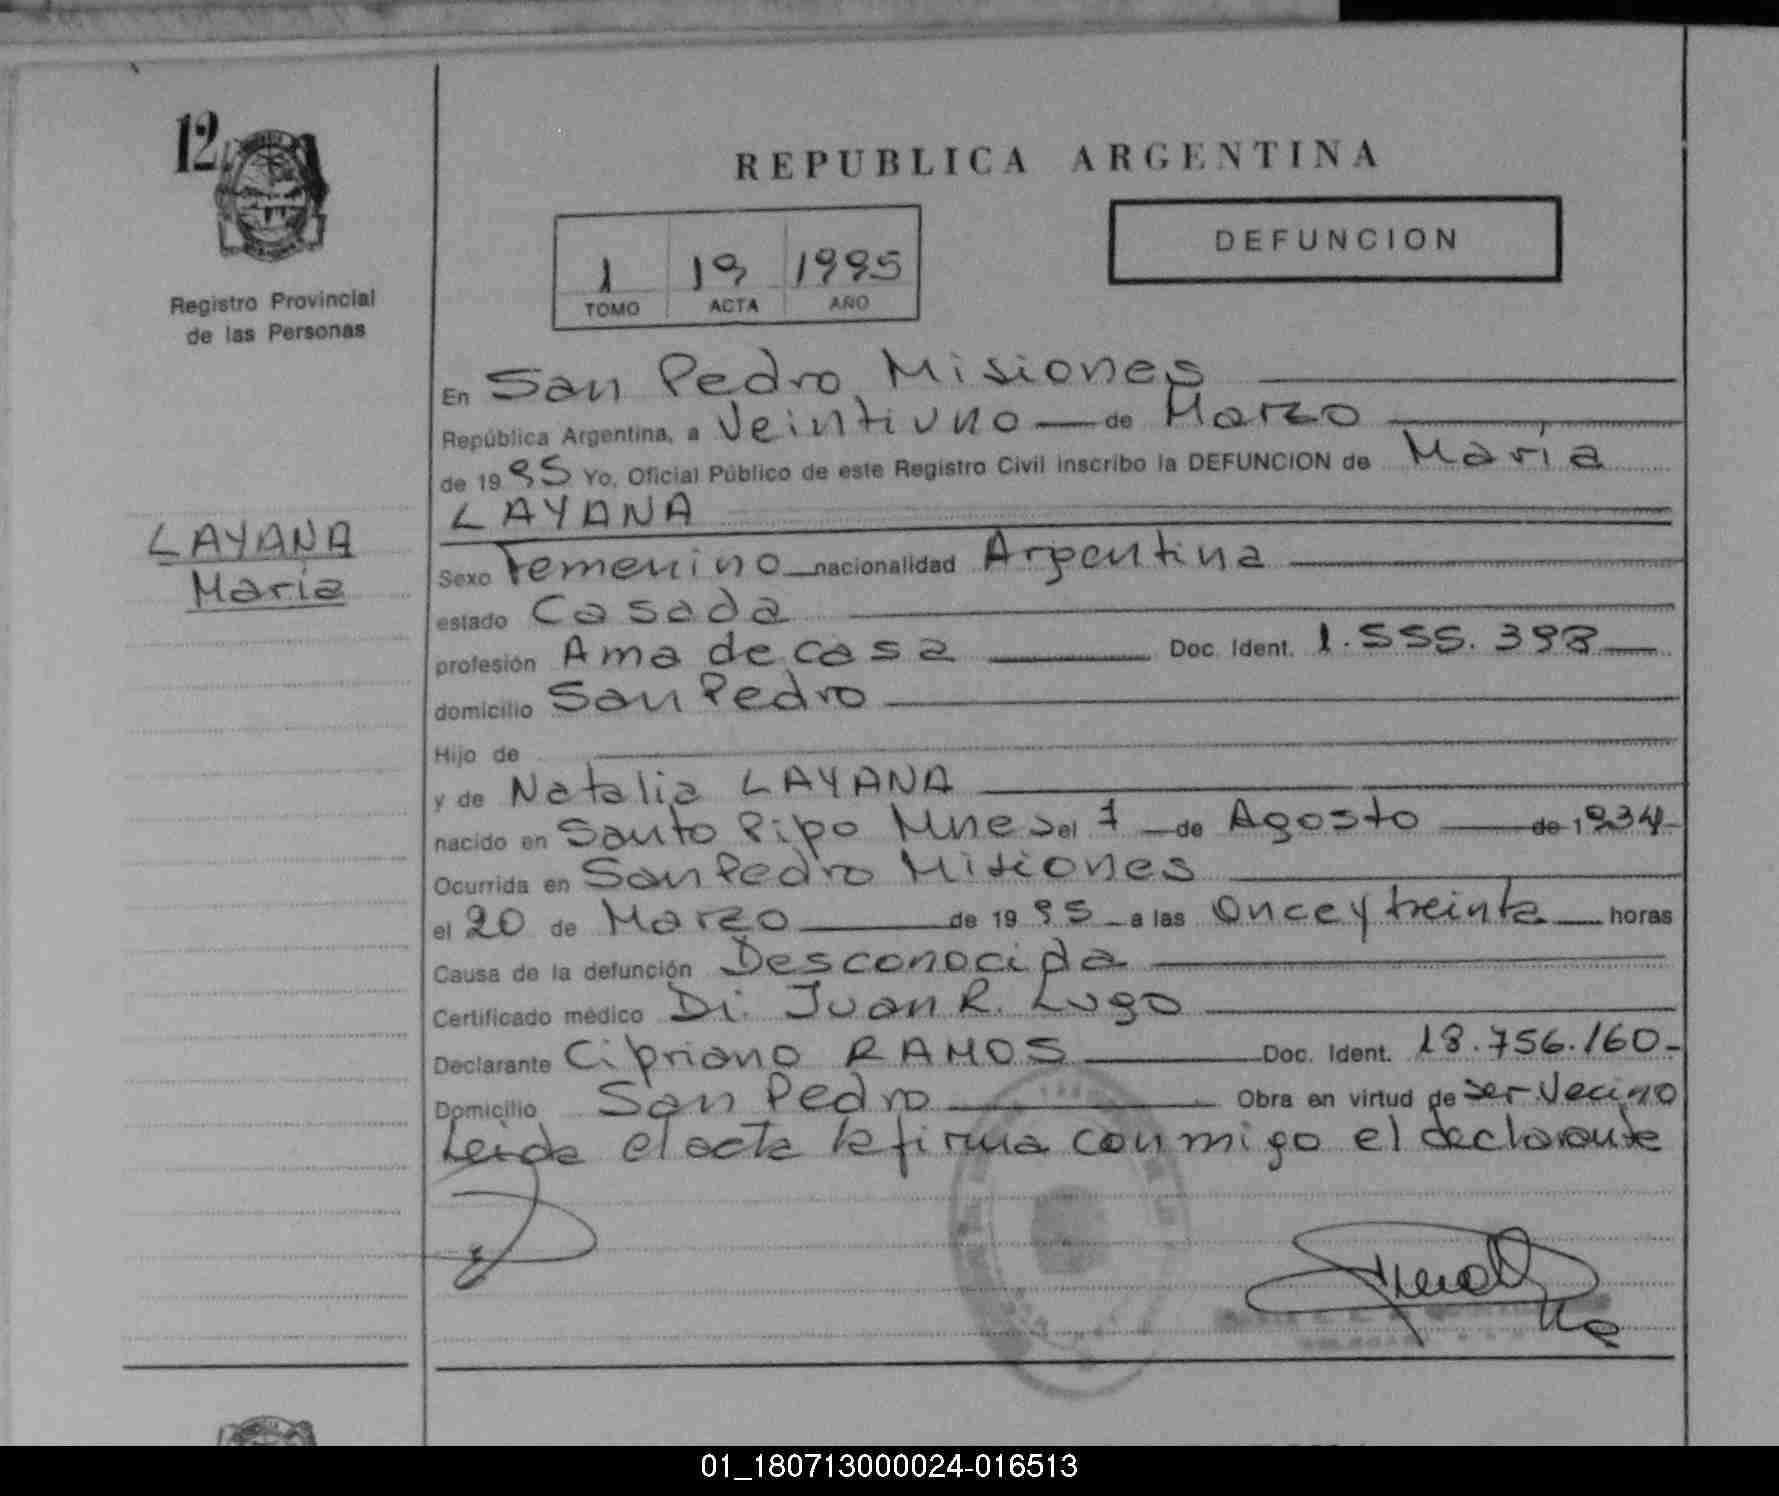 12
REPUBLICA ARGENTINA
DEFUNCION
1 19 1995
TOMO ACTA AÑO
Registro Provincial
de las Personas
LAYANA
María
En San Pedro Misiones
República Argentina, a Veintiuno de Marzo
de 1995 Yo, Oficial Público de este Registro Civil inscribo la DEFUNCION de María
LAYANA
Sexo Femenino nacionalidad Argentina
estado Casada
profesión Ama de casa Doc. Ident. 1.555.398
domicilio San Pedro
Hijo de
y de Natalia LAYANA
nacido en Santo Pipo Mnes el 7 de Agosto de 1934
Ocurrida en San Pedro Misiones
el 20 de Marzo de 1995 a las Once y treinta horas
Causa de la defunción Desconocida
Certificado médico Dr. Juan R. Lugo
Declarante Cipriano RAMOS Doc. Ident. 18.756.160-
Domicilio San Pedro Obra en virtud de ser Vecino
Leida el acta la firma conmigo el declarante
01_180713000024-016513